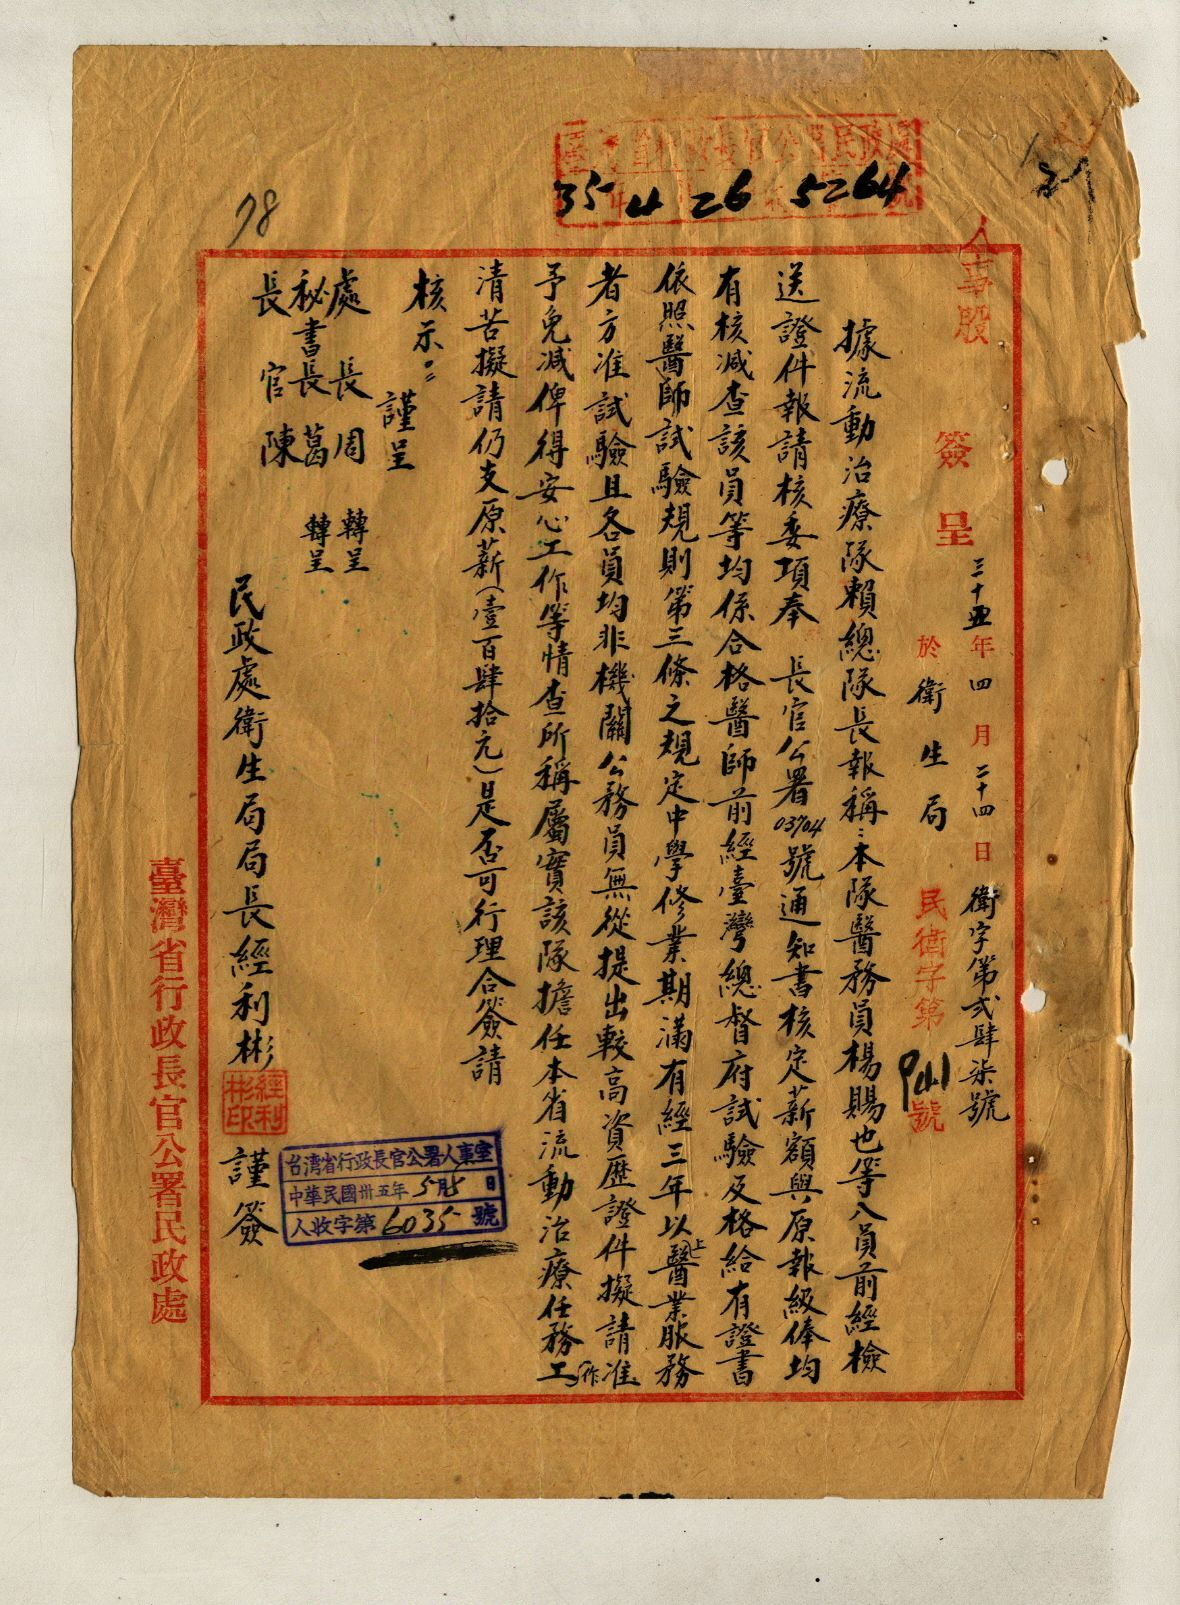 人事股
簽呈
三十五年四月二十四日 衛字第弍肆柒號
於衛生局 民衛字第941號
35 4 26 5264
78
據流動治療隊賴總隊長報稱:本隊醫務員楊賜也等八員前經檢
送證件報請核委項奉 長官公署03704號通知書核定薪額與原報級俸均
有核減查該員等均係合格醫師前經臺灣總督府試驗及格給有證書
依照醫師試驗規則第三條之規定中學修業期滿有經三年以上醫業服務
者方准試驗且各員均非機關公務員無從提出較高資歷證件擬請准
予免減俾得安心工作等情查所稱屬實該隊擔任本省流動治療任務工作
清苦擬請仍支原薪(壹百肆拾元)是否可行理合簽請
核示:
謹呈
處長周 轉呈
秘書長葛 轉呈
長官陳
民政處衛生局局長經利彬 謹簽
經利彬印
台湾省行政長官公署人事室
中華民國卅五年5月 日
人收字第6035號
臺灣省行政長官公署民政處